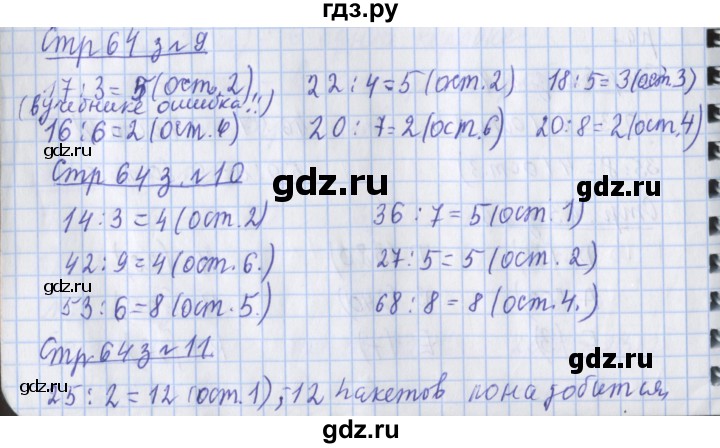 гдз.ру
Стр 64 з №9
17 : 3 = 5 (ост. 2) 22 : 4 = 5 (ост. 2) 18 : 5 = 3 (ост. 3)
(в учебнике ошибка!!)
16 : 6 = 2 (ост. 6) 20 : 7 = 2 (ост. 6) 20 : 8 = 2 (ост. 4)
gdz.ru gdz.ru
Стр 64 з. №10
gdz.ru
14 : 3 = 4 (ост. 2) 36 : 7 = 5 (ост. 1)
gdz.ru
42 : 9 = 4 (ост. 6.) 27 : 5 = 5 (ост. 2)
gdz.ru gdz.ru
53 : 6 = 8 (ост. 5.) 68 : 8 = 8 (ост. 4.)
Стр 64 з №11
gdz.ru
25 : 2 = 12 (ост. 1), -12 пакетов понадобится,
gdz.ru gdz.ru